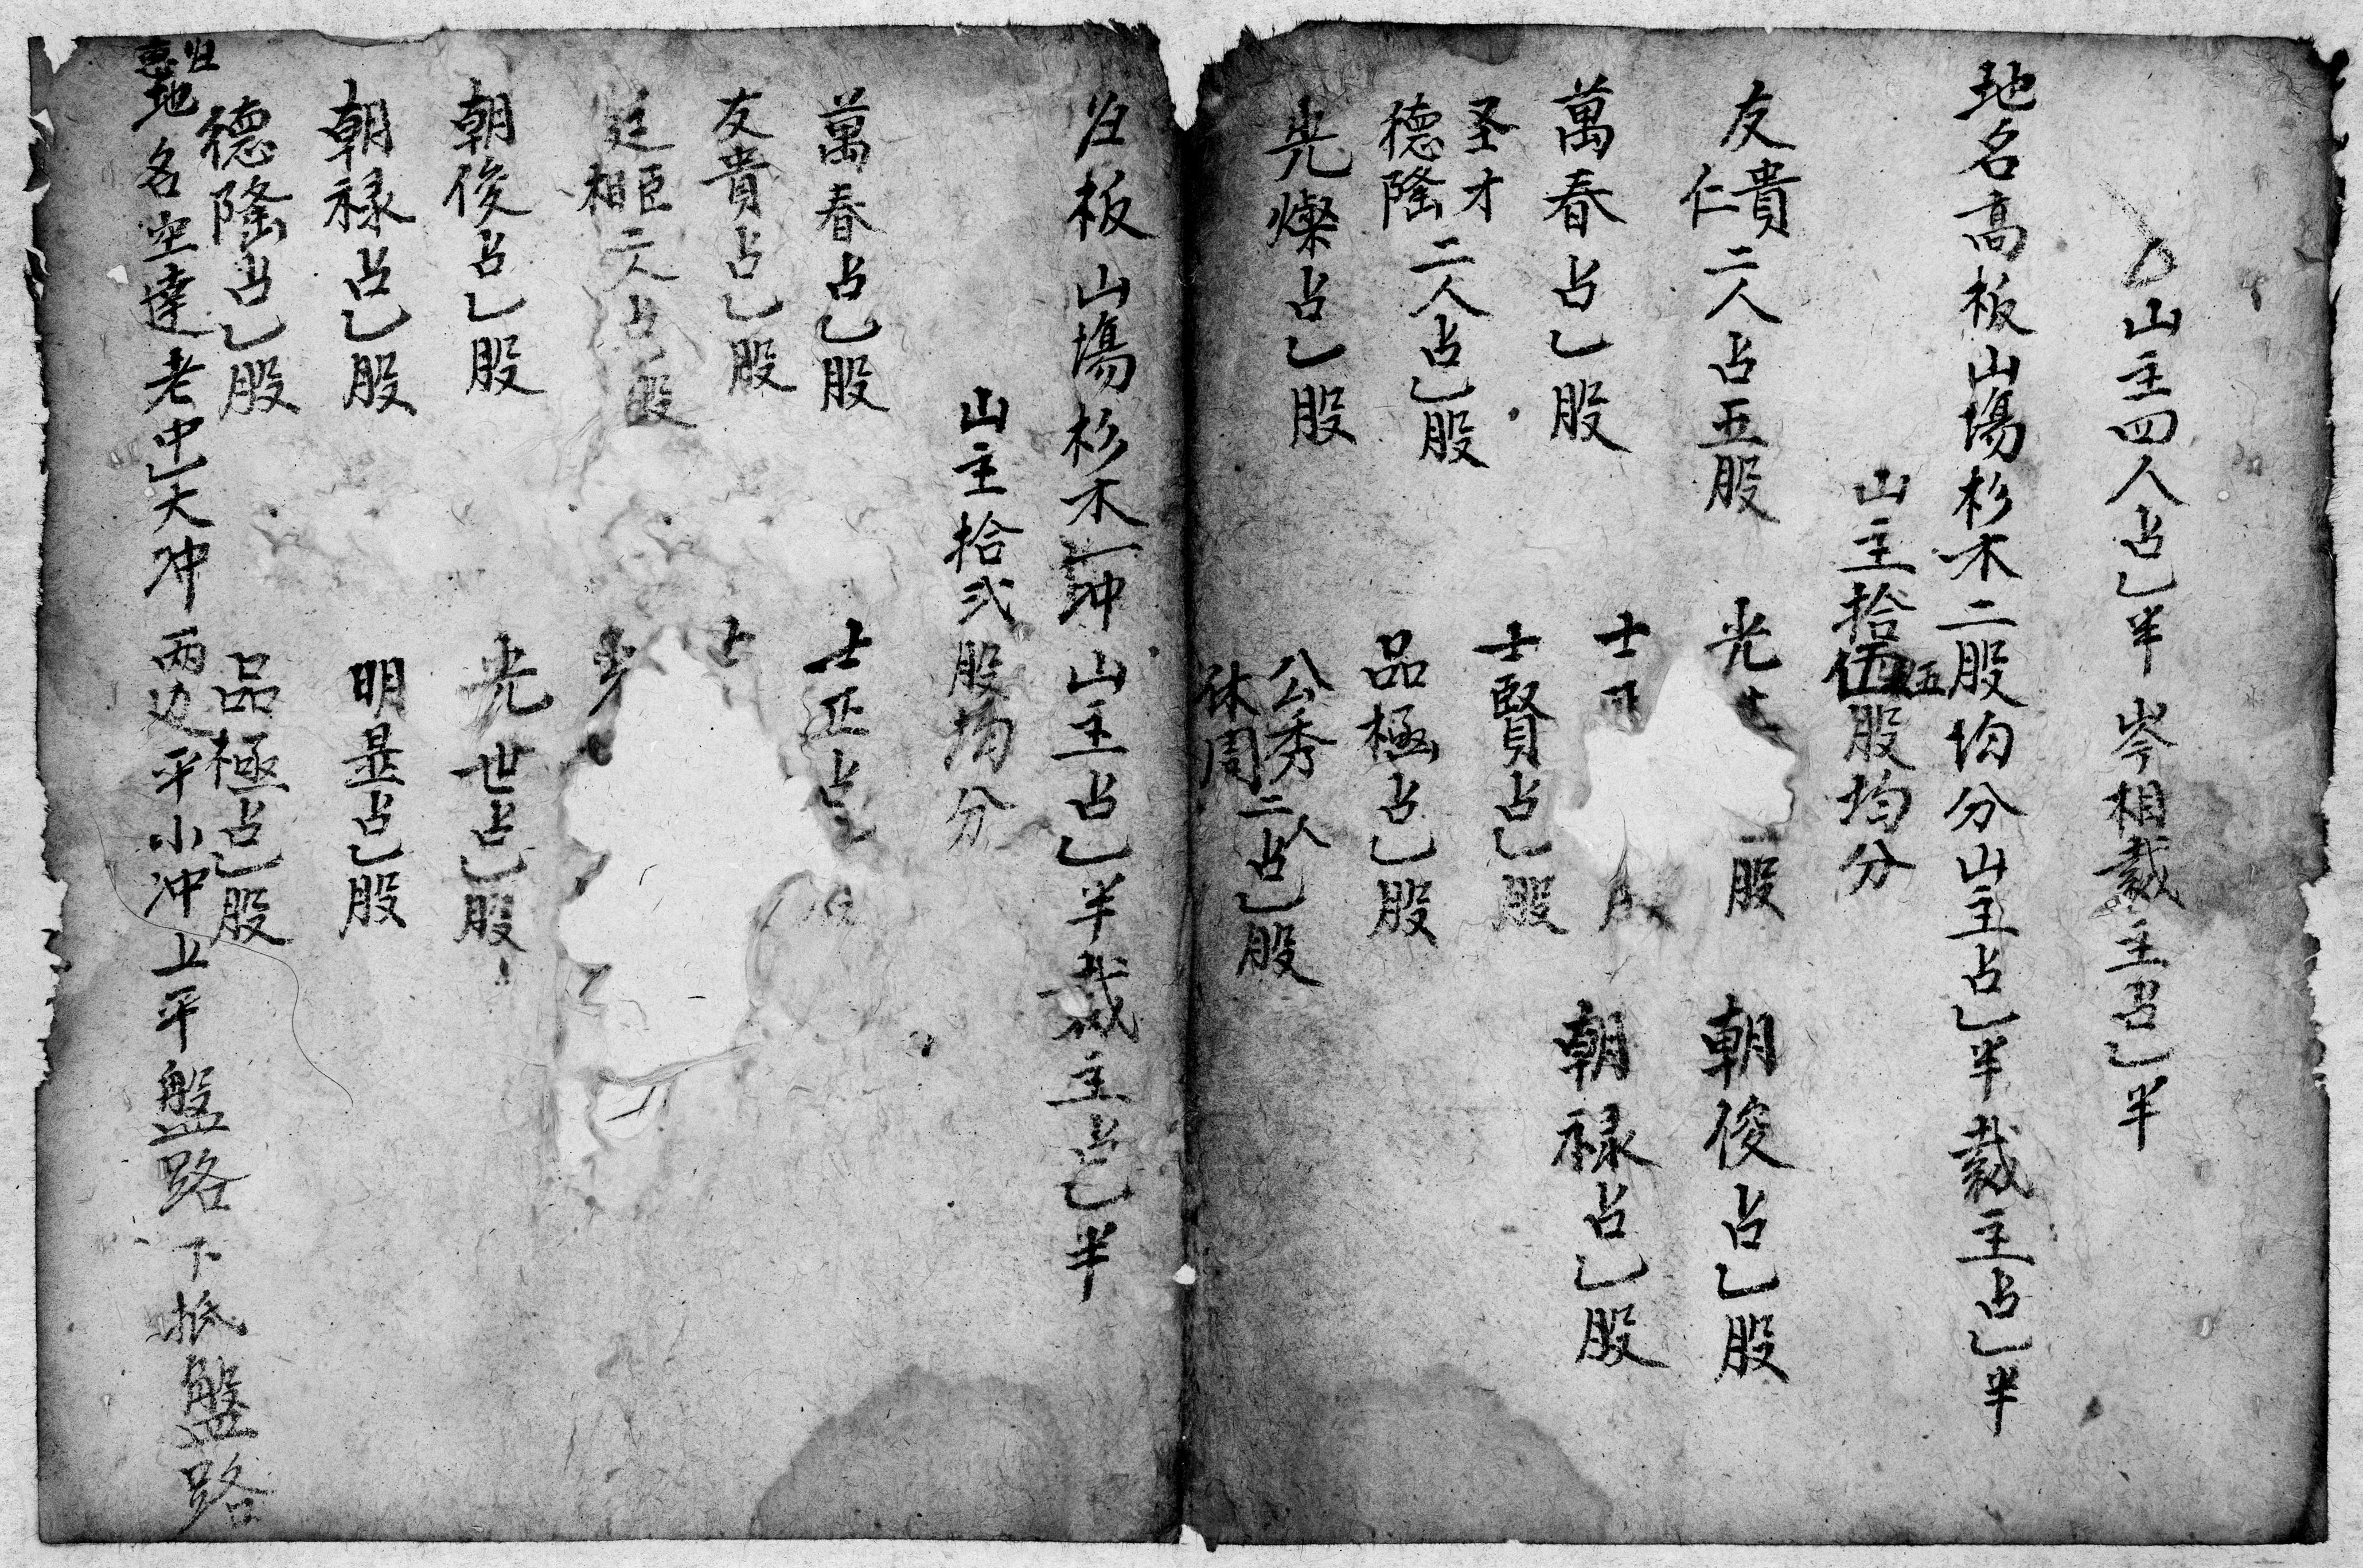 山主四人占乚半岑相栽主占乚半
地名高板山塲杉木二股均分山主占乚半栽主占乚半
山主拾伍股均分
五
友貴仁二人占五股
光 股
朝俊占乚股
萬春占乚股
士
朝禄占乚股
圣才德隆二人占乚股
士賢占乚股
光燦占乚股
品極占乚股
公秀休周二人占乚股
板山塲杉木乚冲山主占乚半栽主占乚半
山主拾弍股均分
萬春占乚股
士正占
友貴占乚股
士
廷相臣二人占 股
光
朝俊占乚股
光世占乚股
朝禄占乚股
明显占乚股
德隆占乚股
品極占乚股
地名空達老中乚大冲両边平小冲上平盤路下抵盤路